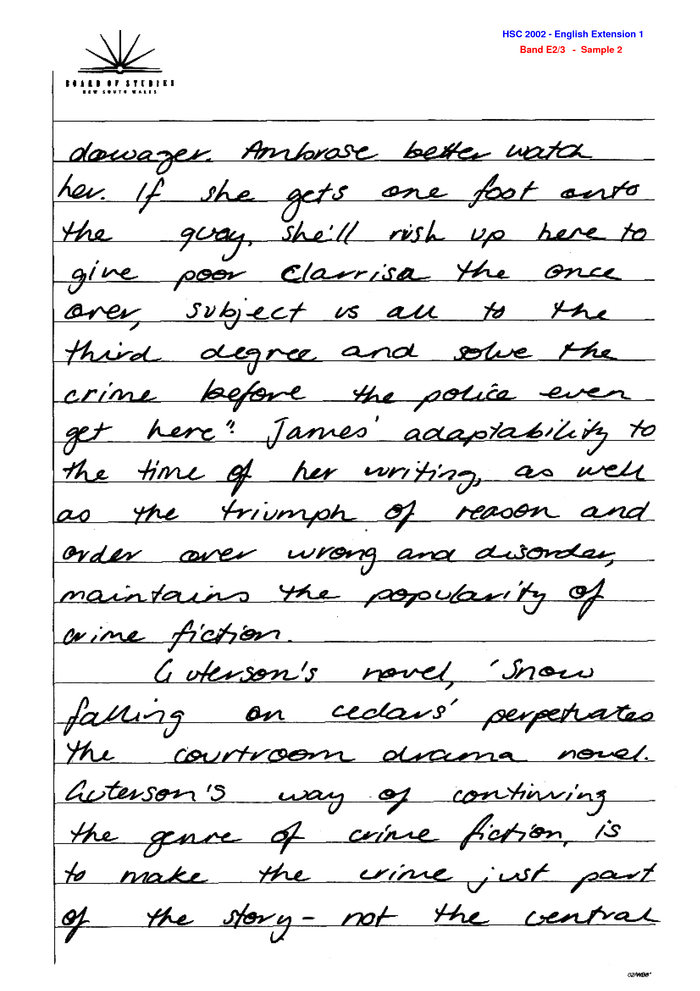 HSC 2002 - English Extension 1
Band E2/3 - Sample 2
BOARD OF STUDIES
NEW SOUTH WALES
dowager. Ambrose better watch
her. If she gets one foot onto
the quay, she'll rush up here to
give poor Clarrisa the once
over, subject us all to the
third degree and solve the
crime before the police even
get here". James' adaptability to
the time of her writing, as well
as the triumph of reason and
order over wrong and disorder,
maintains the popularity of
crime fiction.
Guterson's novel, 'Snow
falling on cedars' perpetuates
the courtroom drama novel.
Guterson's way of continuing
the genre of crime fiction, is
to make the crime just part
of the story - not the central